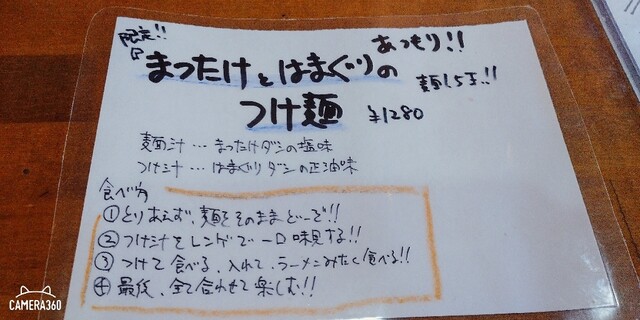 限定!!
『まったけとはまぐりの
あつもり!!
つけ麺
麺1.5玉!!
¥1280
麺汁…まったけダシの塩味
つけ汁…はまぐりダシの正油味
食べ方
①とりあえず、麺をそのままどーぞ!!
②つけ汁をレンゲで一口味見する!!
③つけて食べる、入れて、ラーメンみたく食べる!!
④最後、全て合わせて楽しむ!!
CAMERA360